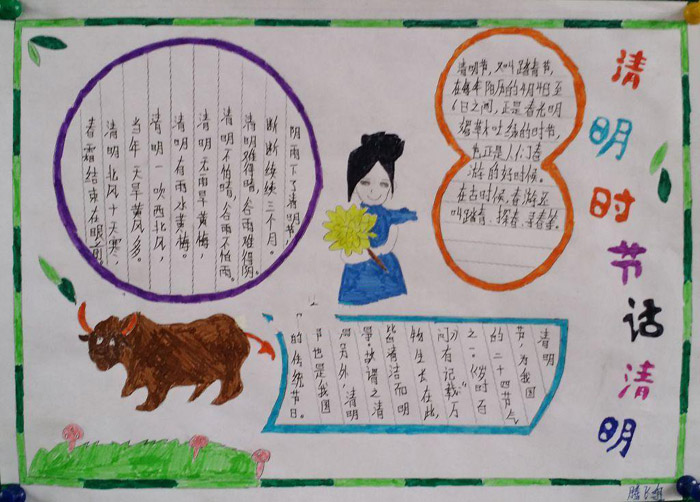 清明时节话清明
清明节,又叫踏青节,
在每年阳历的4月4日至
6日之间,正是春光明
媚草木吐绿的时节,
也正是人们春
游的好时候。
在古时候,春游又
叫踏青、探春、寻春等。
阴雨下了清明节,
断断续续三个月。
清明难得晴,谷雨难得阴。
清明不怕晴,谷雨不怕雨。
清明无雨旱黄梅,
清明有雨水黄梅。
清明一吹西北风,
当年天旱黄风多。
清明北风十天寒,
春霜结束在眼前
清明
节,为我国
的二十四节气
之一。时百
问有记载"万
物生长在此,
皆清洁而明
故谓之清
明另外,清明
节也是我国
的传统节日。
腾飞组